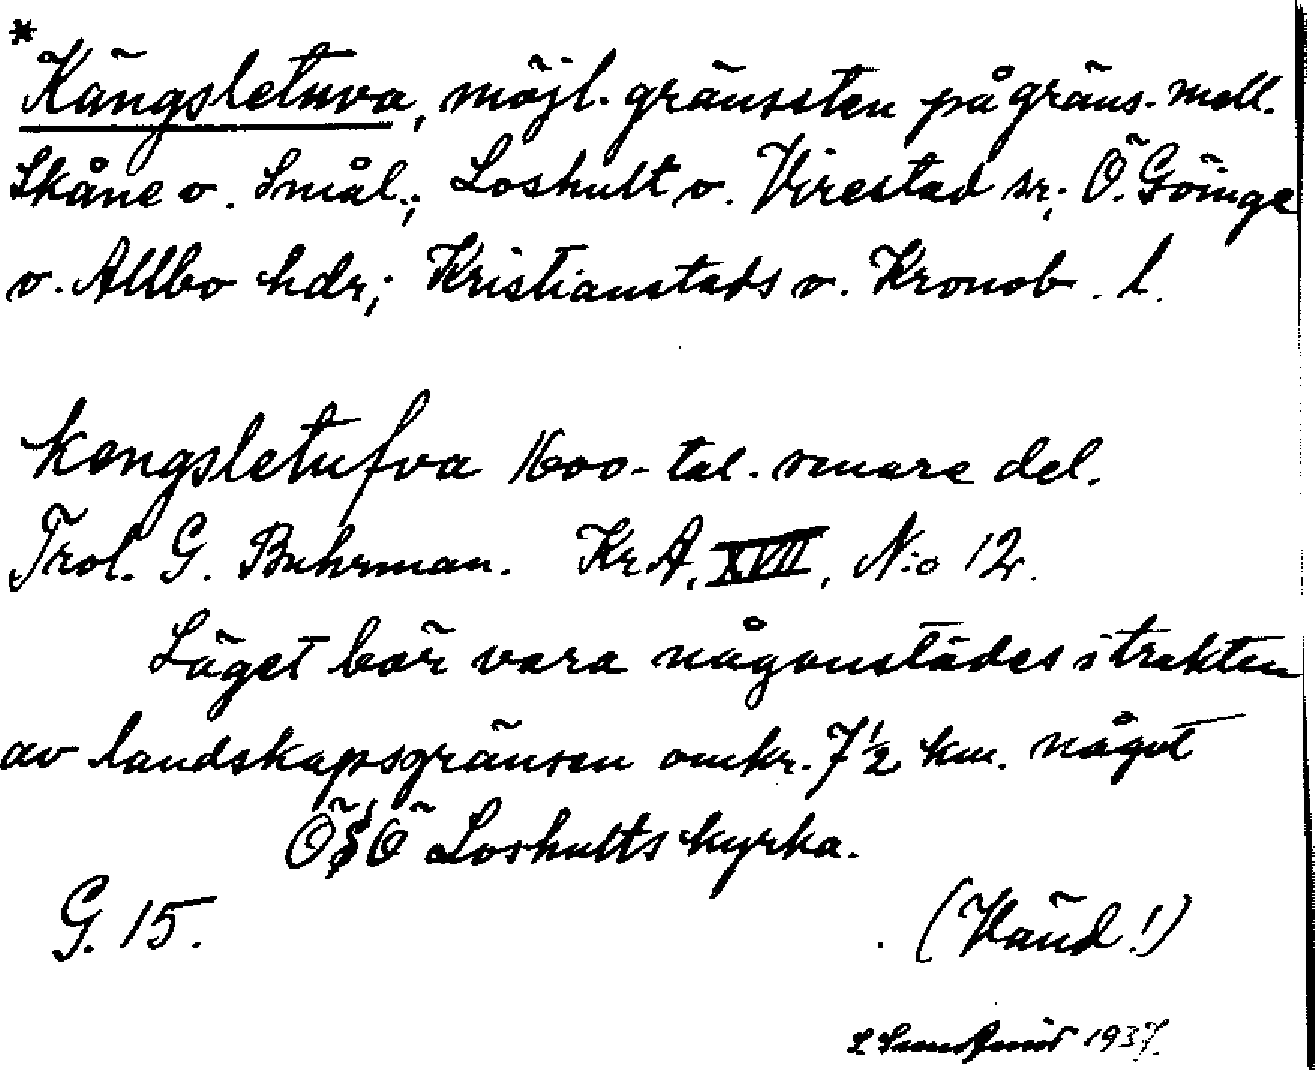 *
Kängsletuva, möjl. gränssten på gräns. mell.
Skåne o. Smål.; Loshult o. Virestad sr; Ö. Göinge
o. Allbo hdr; Kristianstads o. Kronob. l.
Kengsletufva 1600-tal. senare del.
Trol. G. Buhrman. KrA, XVII, N:o 12.
Läget bör vara någonstädes i trakten
av landskapsgränsen omkr. 7½ km. något
ÖSÖ Loshults kyrka.
G. 15.
(Vänd!)
1937.